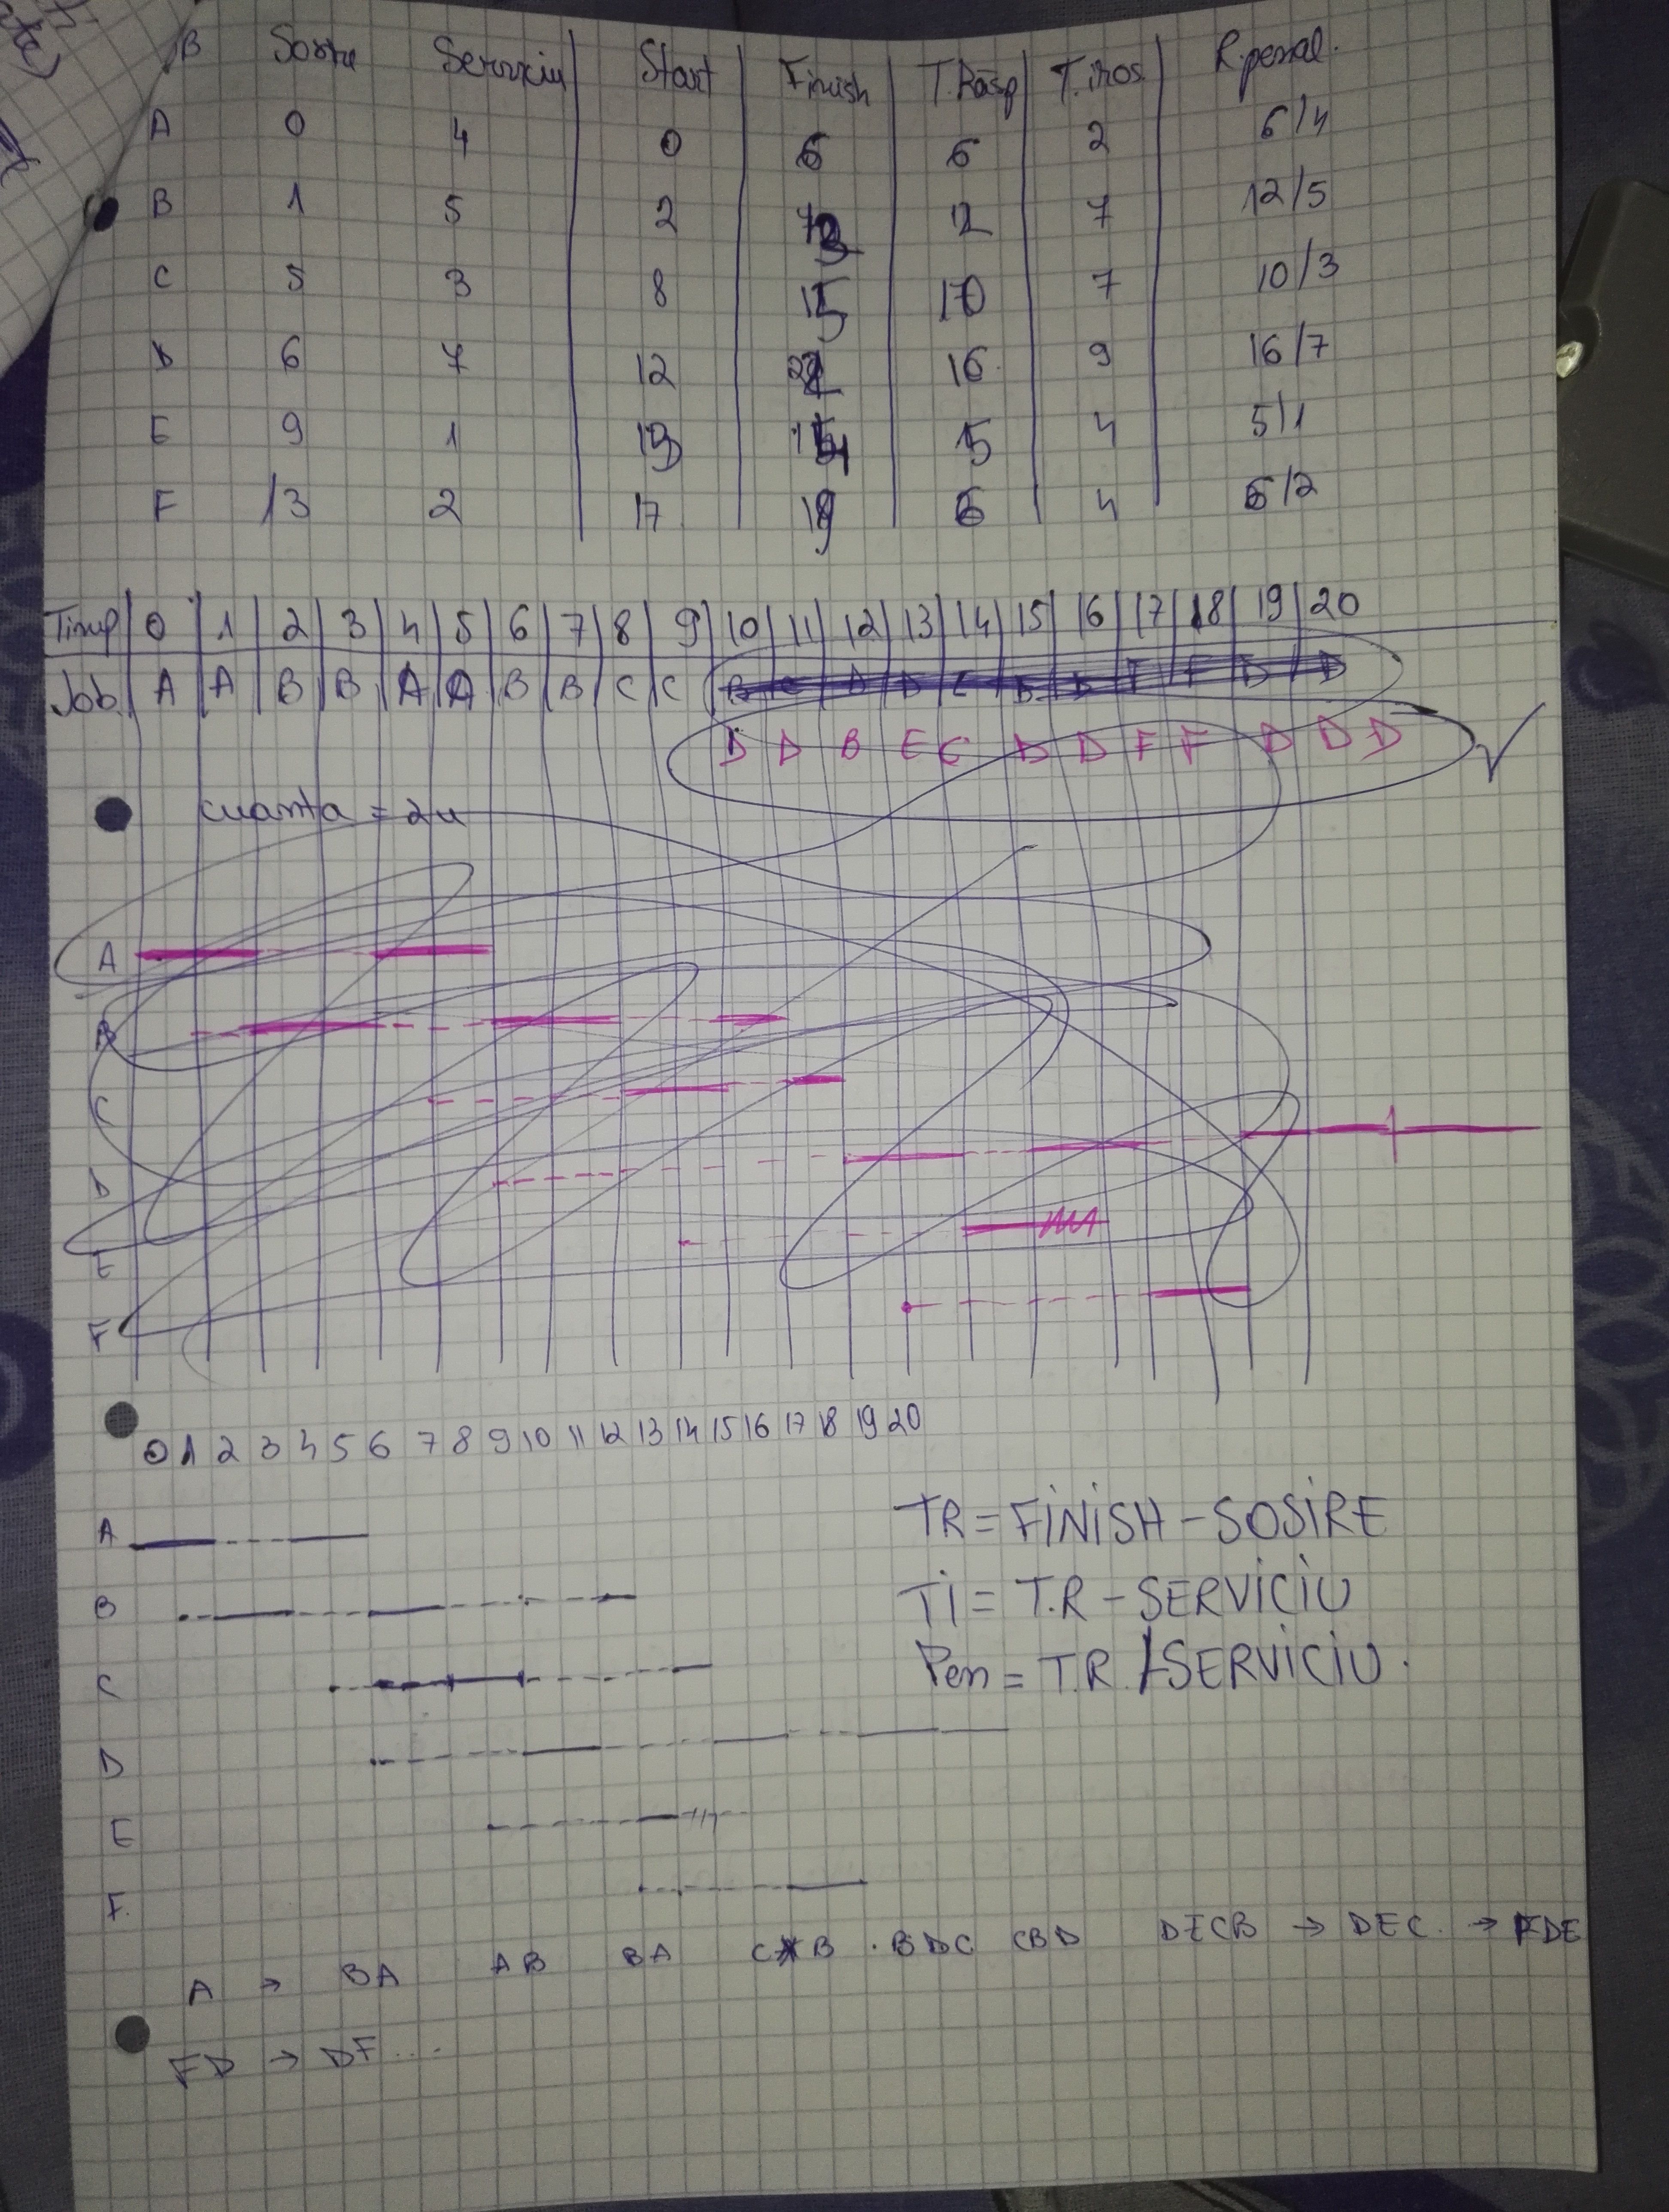 B Sosire Serviciu Start Finish T.Răsp T.iros R.penal.
A 0 4 0 6 6 2 6/4
B 1 5 2 13 12 7 12/5
C 5 3 8 15 10 7 10/3
D 6 7 12 22 16 9 16/7
E 9 1 13 14 5 4 5/1
F 13 2 17 19 6 4 6/2
Timp 0 1 2 3 4 5 6 7 8 9 10 11 12 13 14 15 16 17 18 19 20
Job A A B B A A B B C C
D D B E C D D F F D D D
cuanta = 2u
A
B
C
D
E
F
0 1 2 3 4 5 6 7 8 9 10 11 12 13 14 15 16 17 18 19 20
A
TR = FINISH - SOSIRE
B
Ti = T.R - SERVICIU
C
Pen = T.R. / SERVICIU.
D
E
F.
A → BA AB BA CB . BDC CBD DECB → DEC. → FDE
FD → DF....